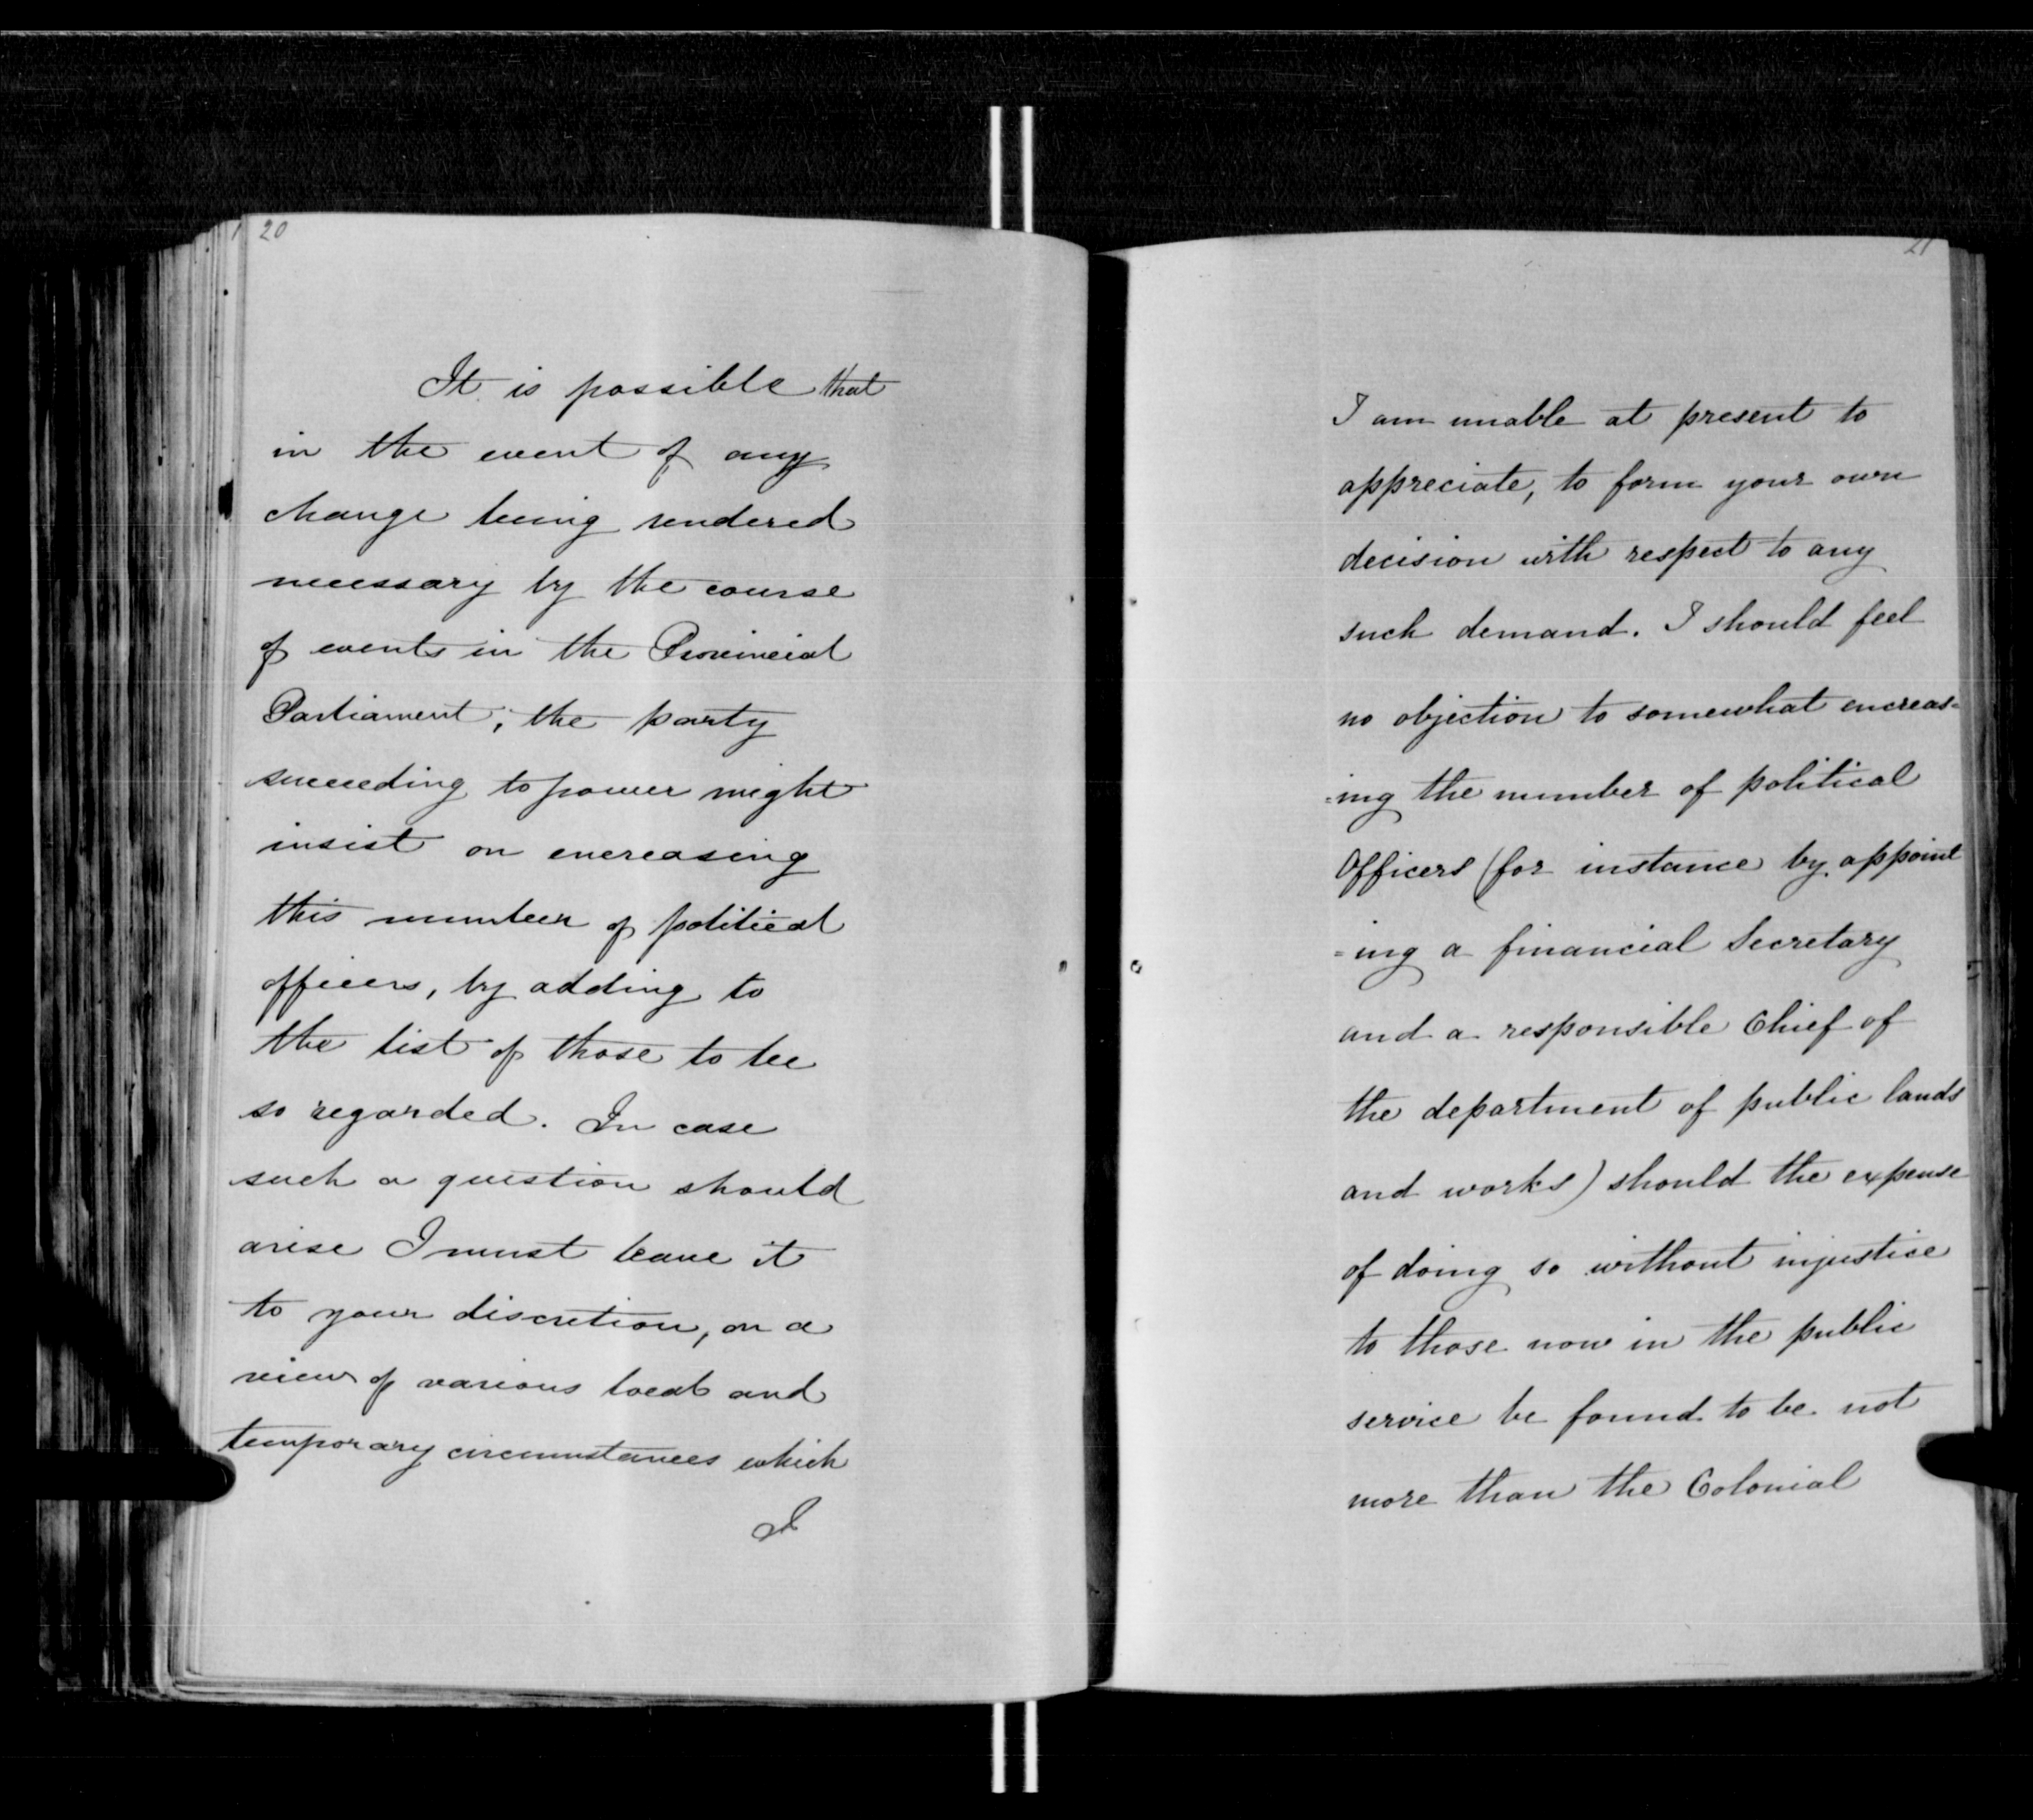 20
It is possible that
in the event of any
change being rendered
necessary by the course
of events in the Provincial
Parliament, the party
succeeding to power might
insist on encreasing
this number of political
officers, by adding to
the list of those to be
so regarded. In case
such a question should
arise I must leave it
to your discretion, on a
view of various local and
temporary circumstances which
I
21
I am unable at present to
appreciate, to form your own
decision with respect to any
such demand. I should feel
no objection to somewhat encreas=
=ing the number of political
Officers (for instance by appoint
=ing a financial Secretary
and a responsible Chief of
the department of public lands
and works) should the expense
of doing so without injustice
to those now in the public
service be found to be not
more than the Colonial